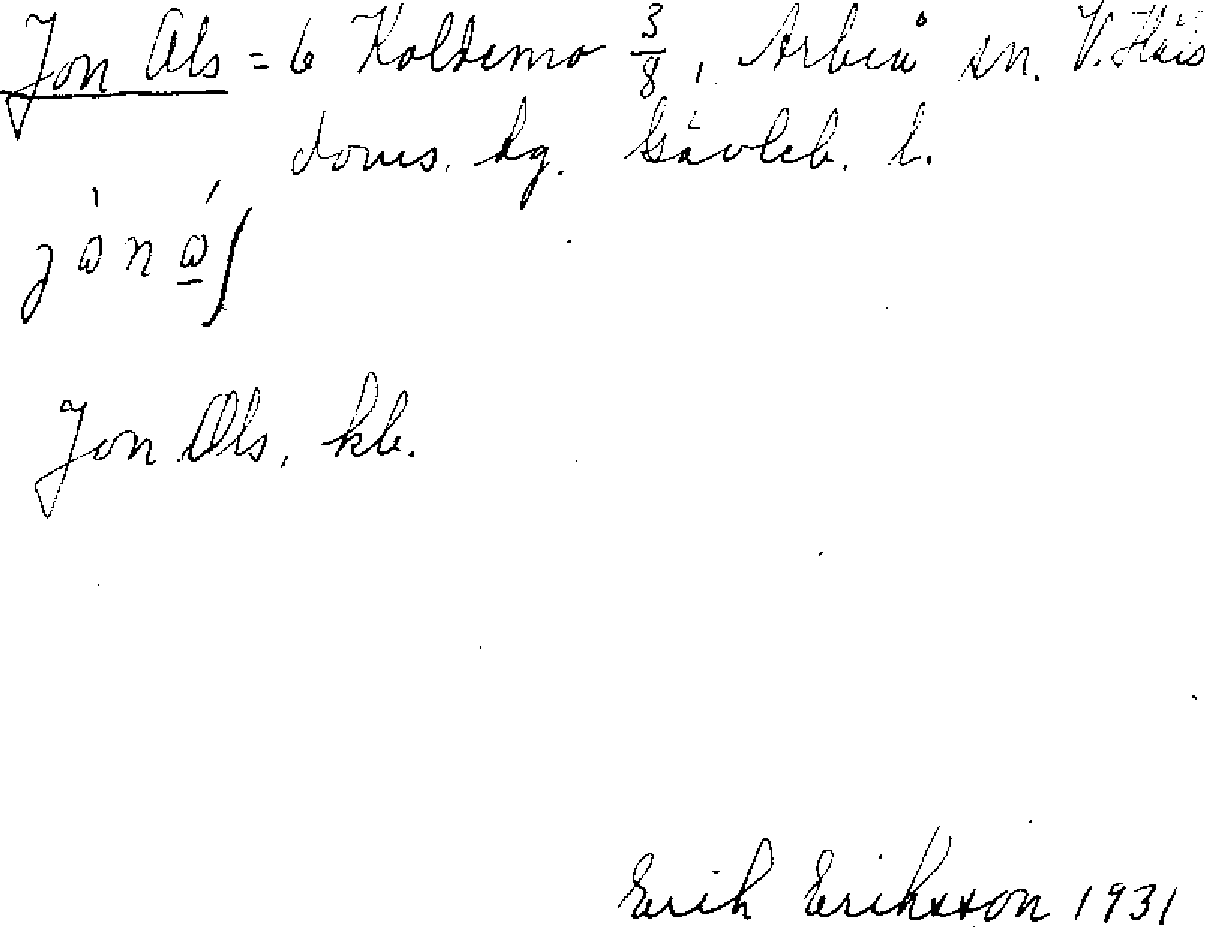 Jon Als = 6 Koldemo 3/8, Arbrå sn. V. Häls
doms. hg. Gävleb. l.
Jon Ols, kb.
Erik Eriksson 1931